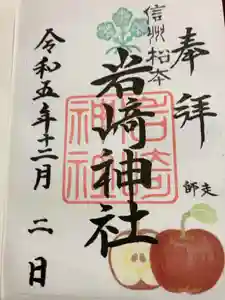 奉拝
信州松本
岩崎神社
師走
令和五年十二月二日
岩崎
神社